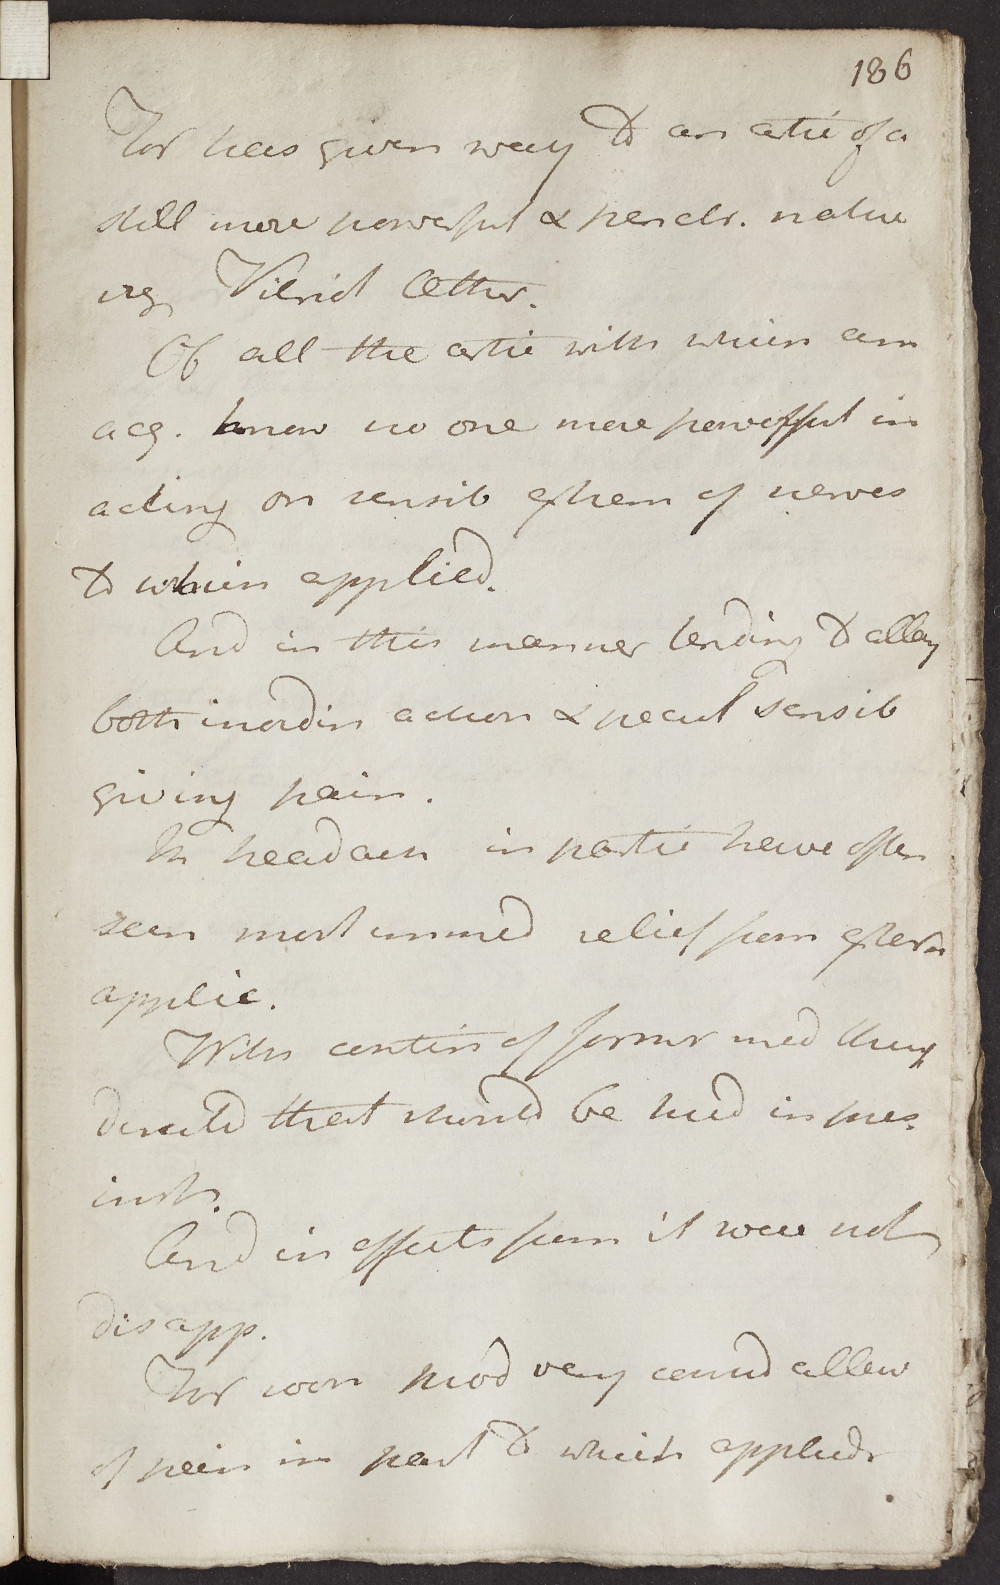 186
For has given way to an artic of a
still more powerful & penetr. nature
viz Vitriol Æther.
Of all the artic with which am
acq. know no one more powerful in
acting on sensib of nerves
to which applied.
And in this manner tending to allay
both inordin action & pecul sensib
giving pain.
In headach in partic have often
seen most immed relief from extern
applic.
With contin of former med they
directd that should be used in pres.
inst.
And in effects from it were not
disapp.
For soon prod very consid allev
of pain in part to which applied